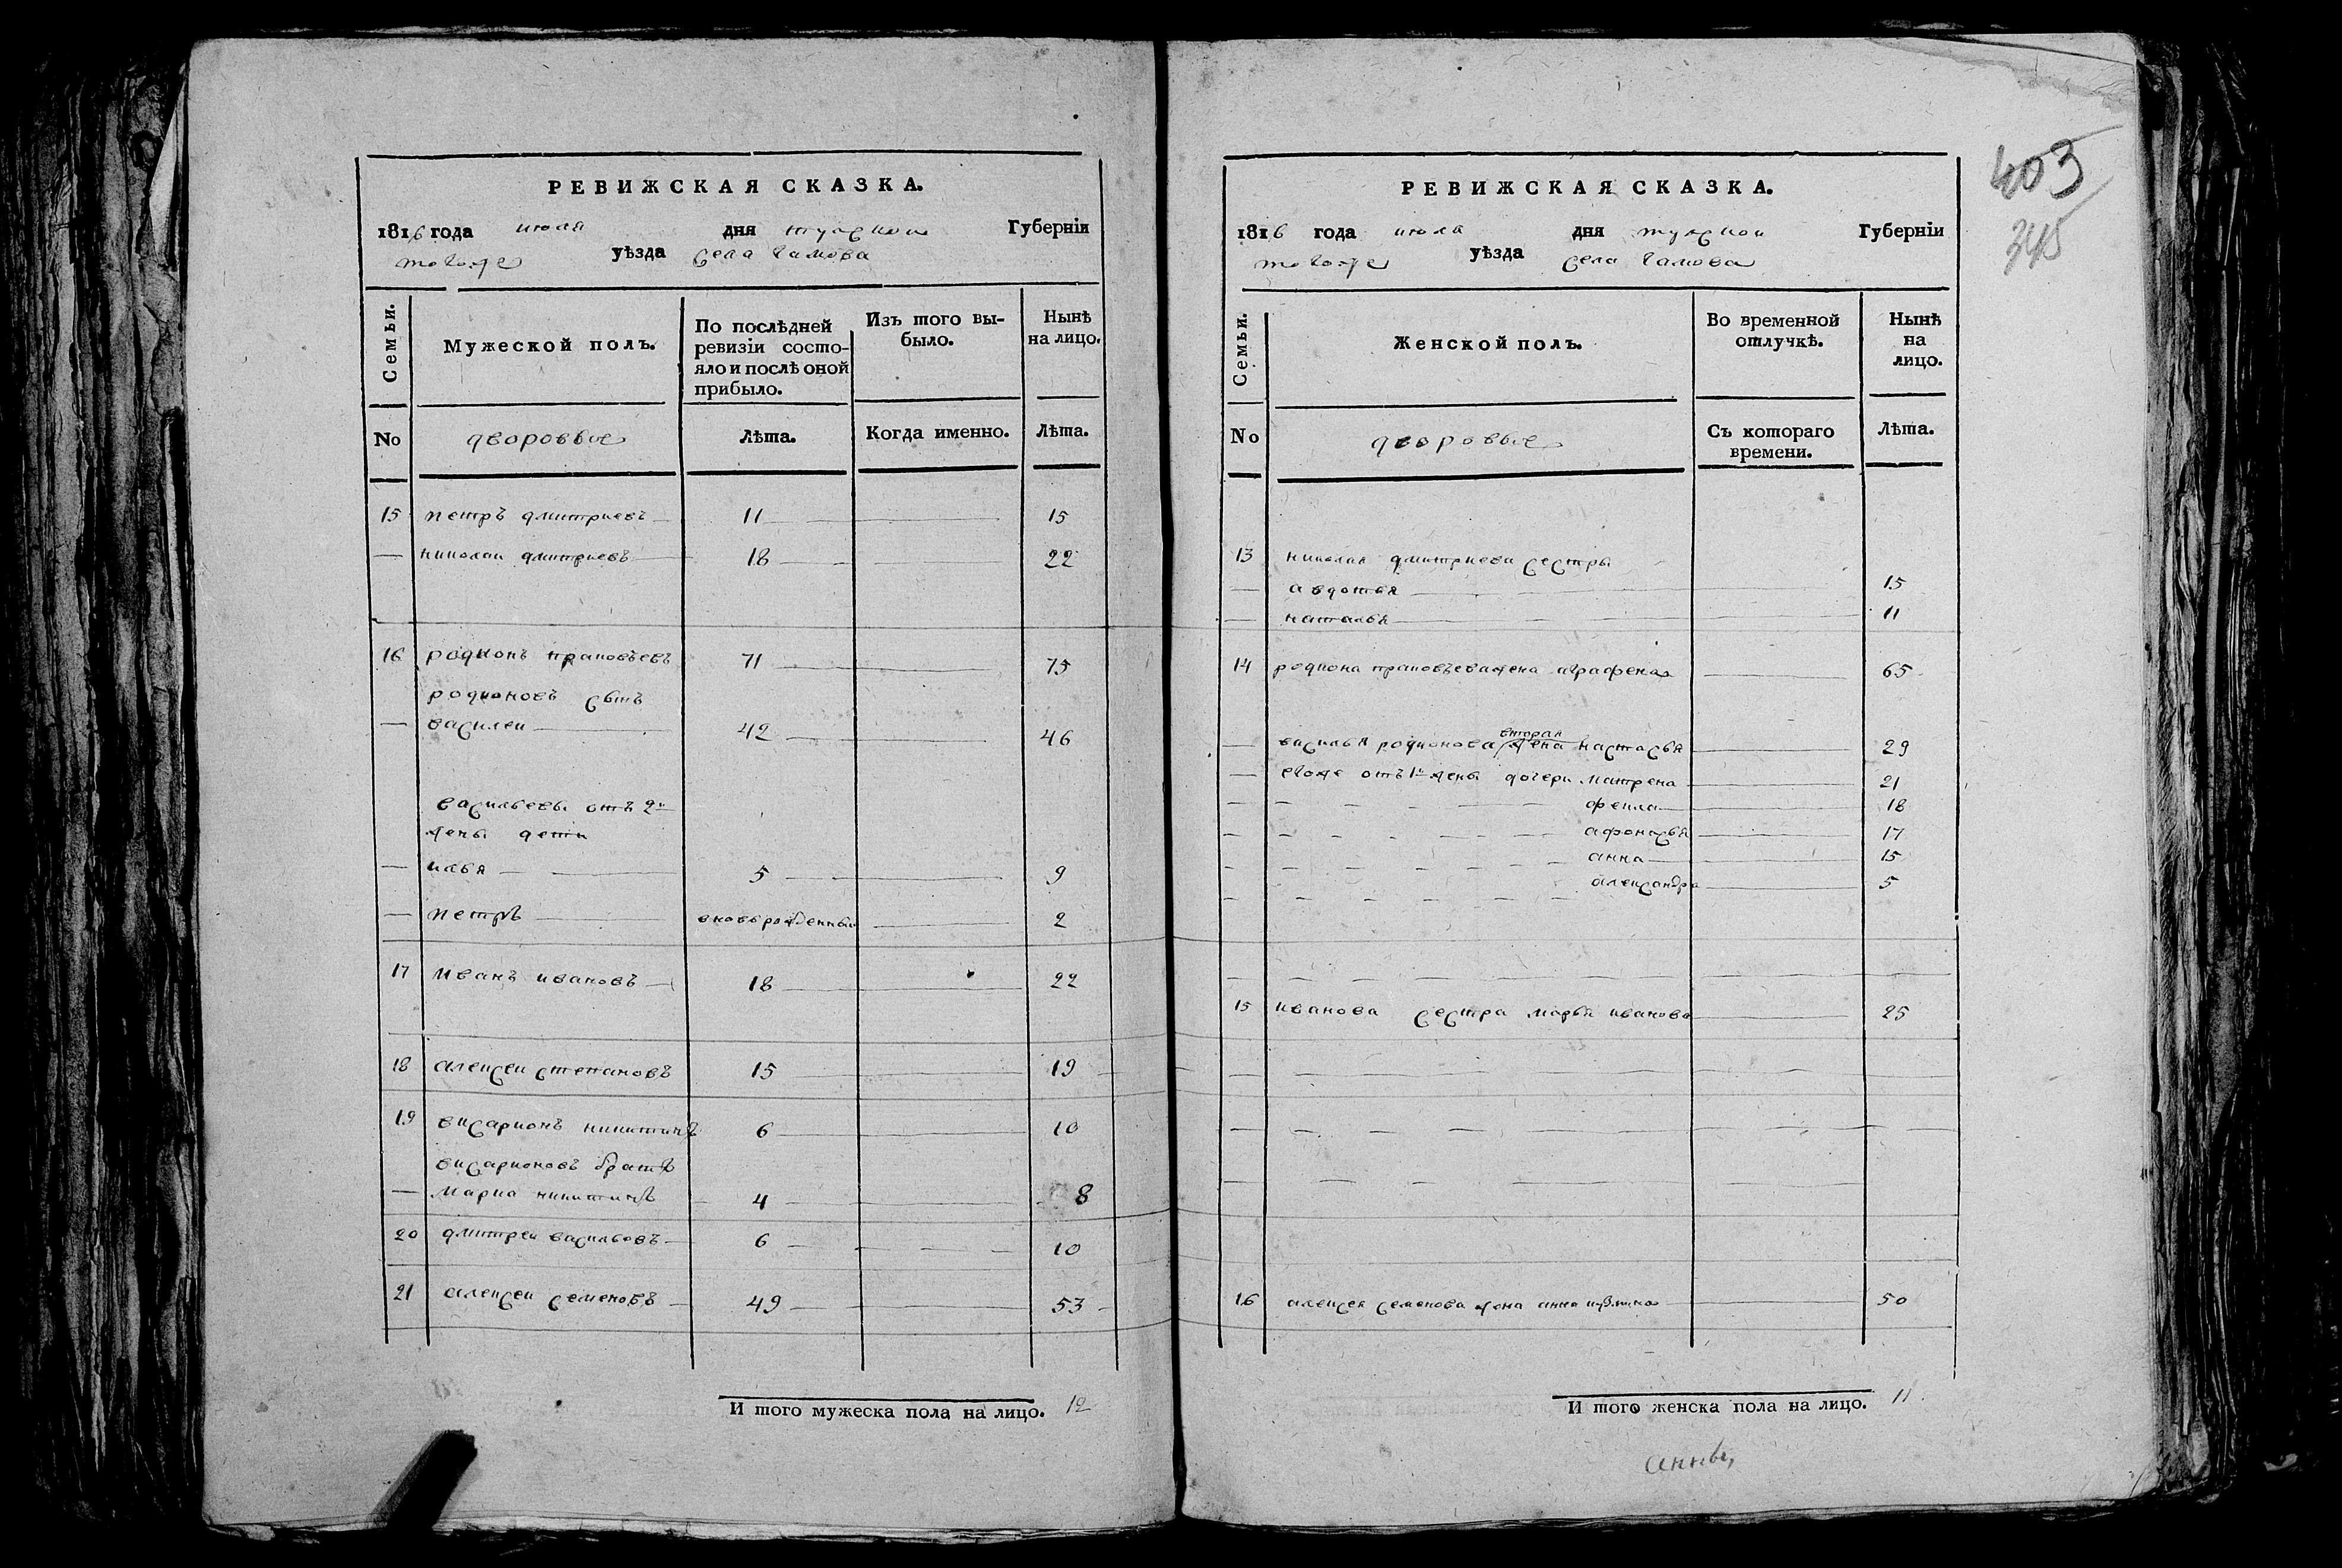 РЕВИЖСКАЯ СКАЗКА.
1816 года июля дня тулской Губерніи
тогоже уѣзда села гамова
Семьи.
Мужеской полъ.
По послѣдней ревизіи состояло и послѣ оной прибыло.
Изъ того выбыло.
Нынѣ на лицо.
No
дворовые
Лѣта.
Когда именно.
Лѣта.
15 петръ дмитриевъ 11 15
николай дмитриевъ 18 22
16 родионъ 71 75
родионовъ сынъ
василеи 42 46
васильевы отъ 2й
жены дети
илья 5 9
петръ вновьрожденный 2
17 иванъ ивановъ 18 22
18 алексеи степановъ 15 19
19 висарионъ никитинъ 6 10
висарионовъ братъ
марка никитинъ 4 8
20 дмитреи васильевъ 6 10
21 алексеи семеновъ 49 53
И того мужеска пола на лицо. 12
403
345
РЕВИЖСКАЯ СКАЗКА.
1816 года июля дня тулской Губерніи
тогоже уѣзда села гамова
Семьи.
Женской полъ.
Во временной отлучкѣ.
Нынѣ на лицо.
No
дворовые
Съ котораго времени.
Лѣта.
13 николая дмитриева сестры
авдотья 15
наталья 11
14 родиона жена аграфена 65
вторая
василья родионова жена настасья 29
егоже отъ 1й жены дочери матрена 21
фекла 18
афонасья 17
анна 15
александра 5
15 иванова сестра марья иванова 25
16 алексея семенова жена анна кузмина 50
И того женска пола на лицо. 11